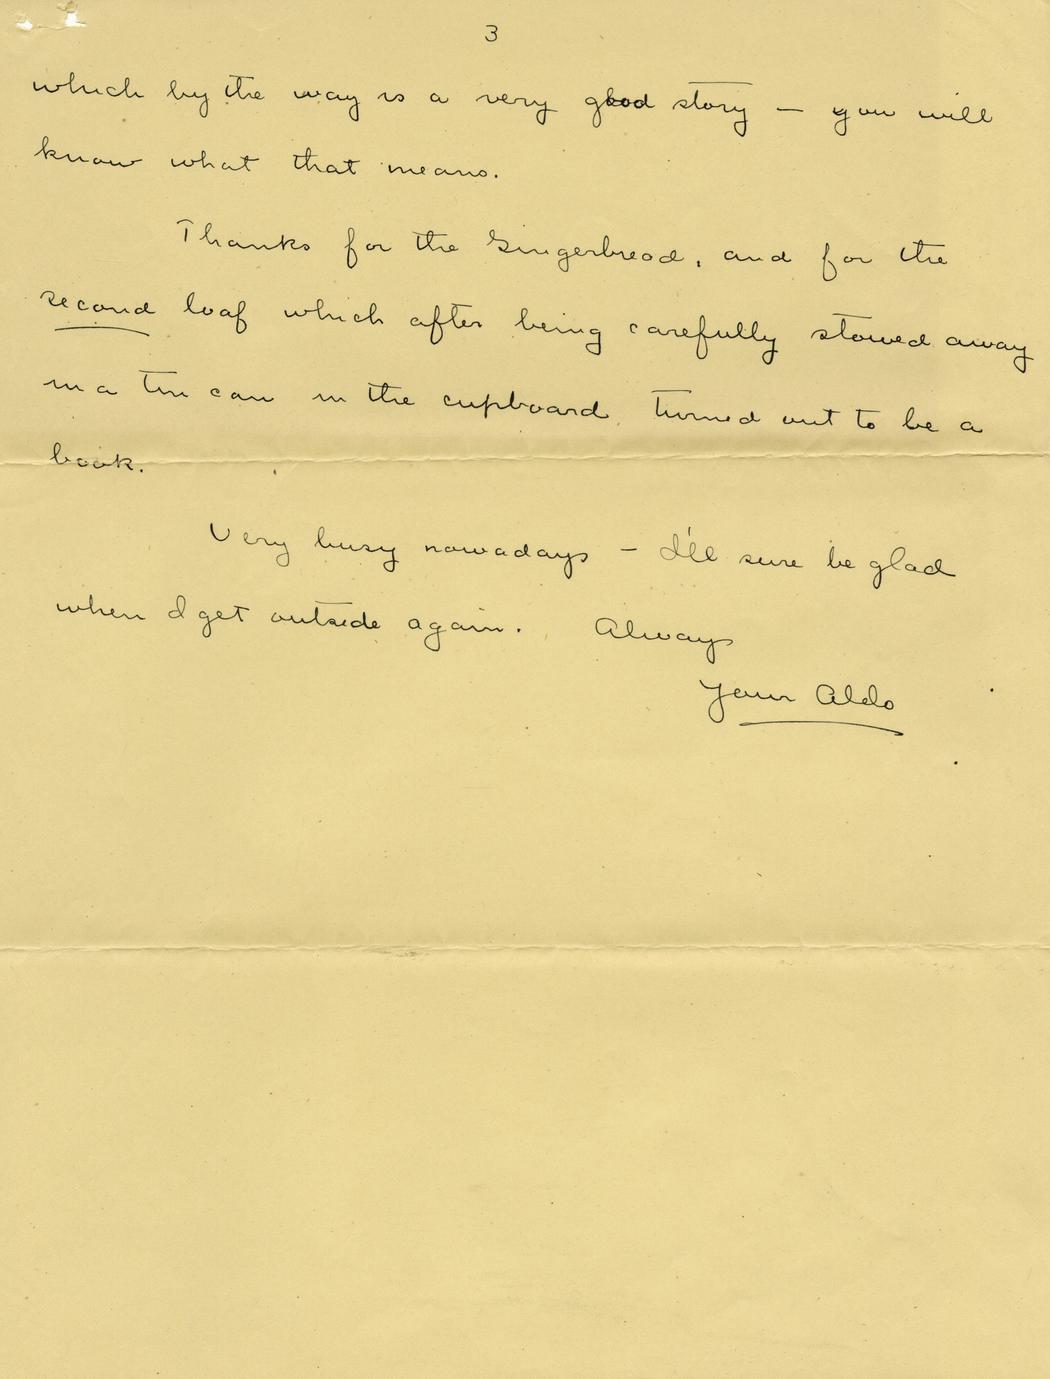 3
which by the way is a very good story — you will
know what that means.
Thanks for the Gingerbread, and for the
second loaf which after being carefully stowed away
in a tin can in the cupboard turned out to be a
book.
Very busy nowadays — I'll sure be glad
when I get outside again. Always
Your Aldo